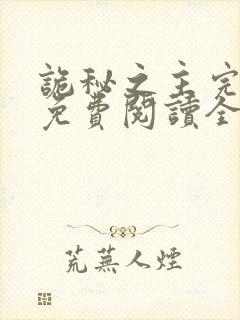 詭秘之主完
免費閱讀全
荒蕪人煙